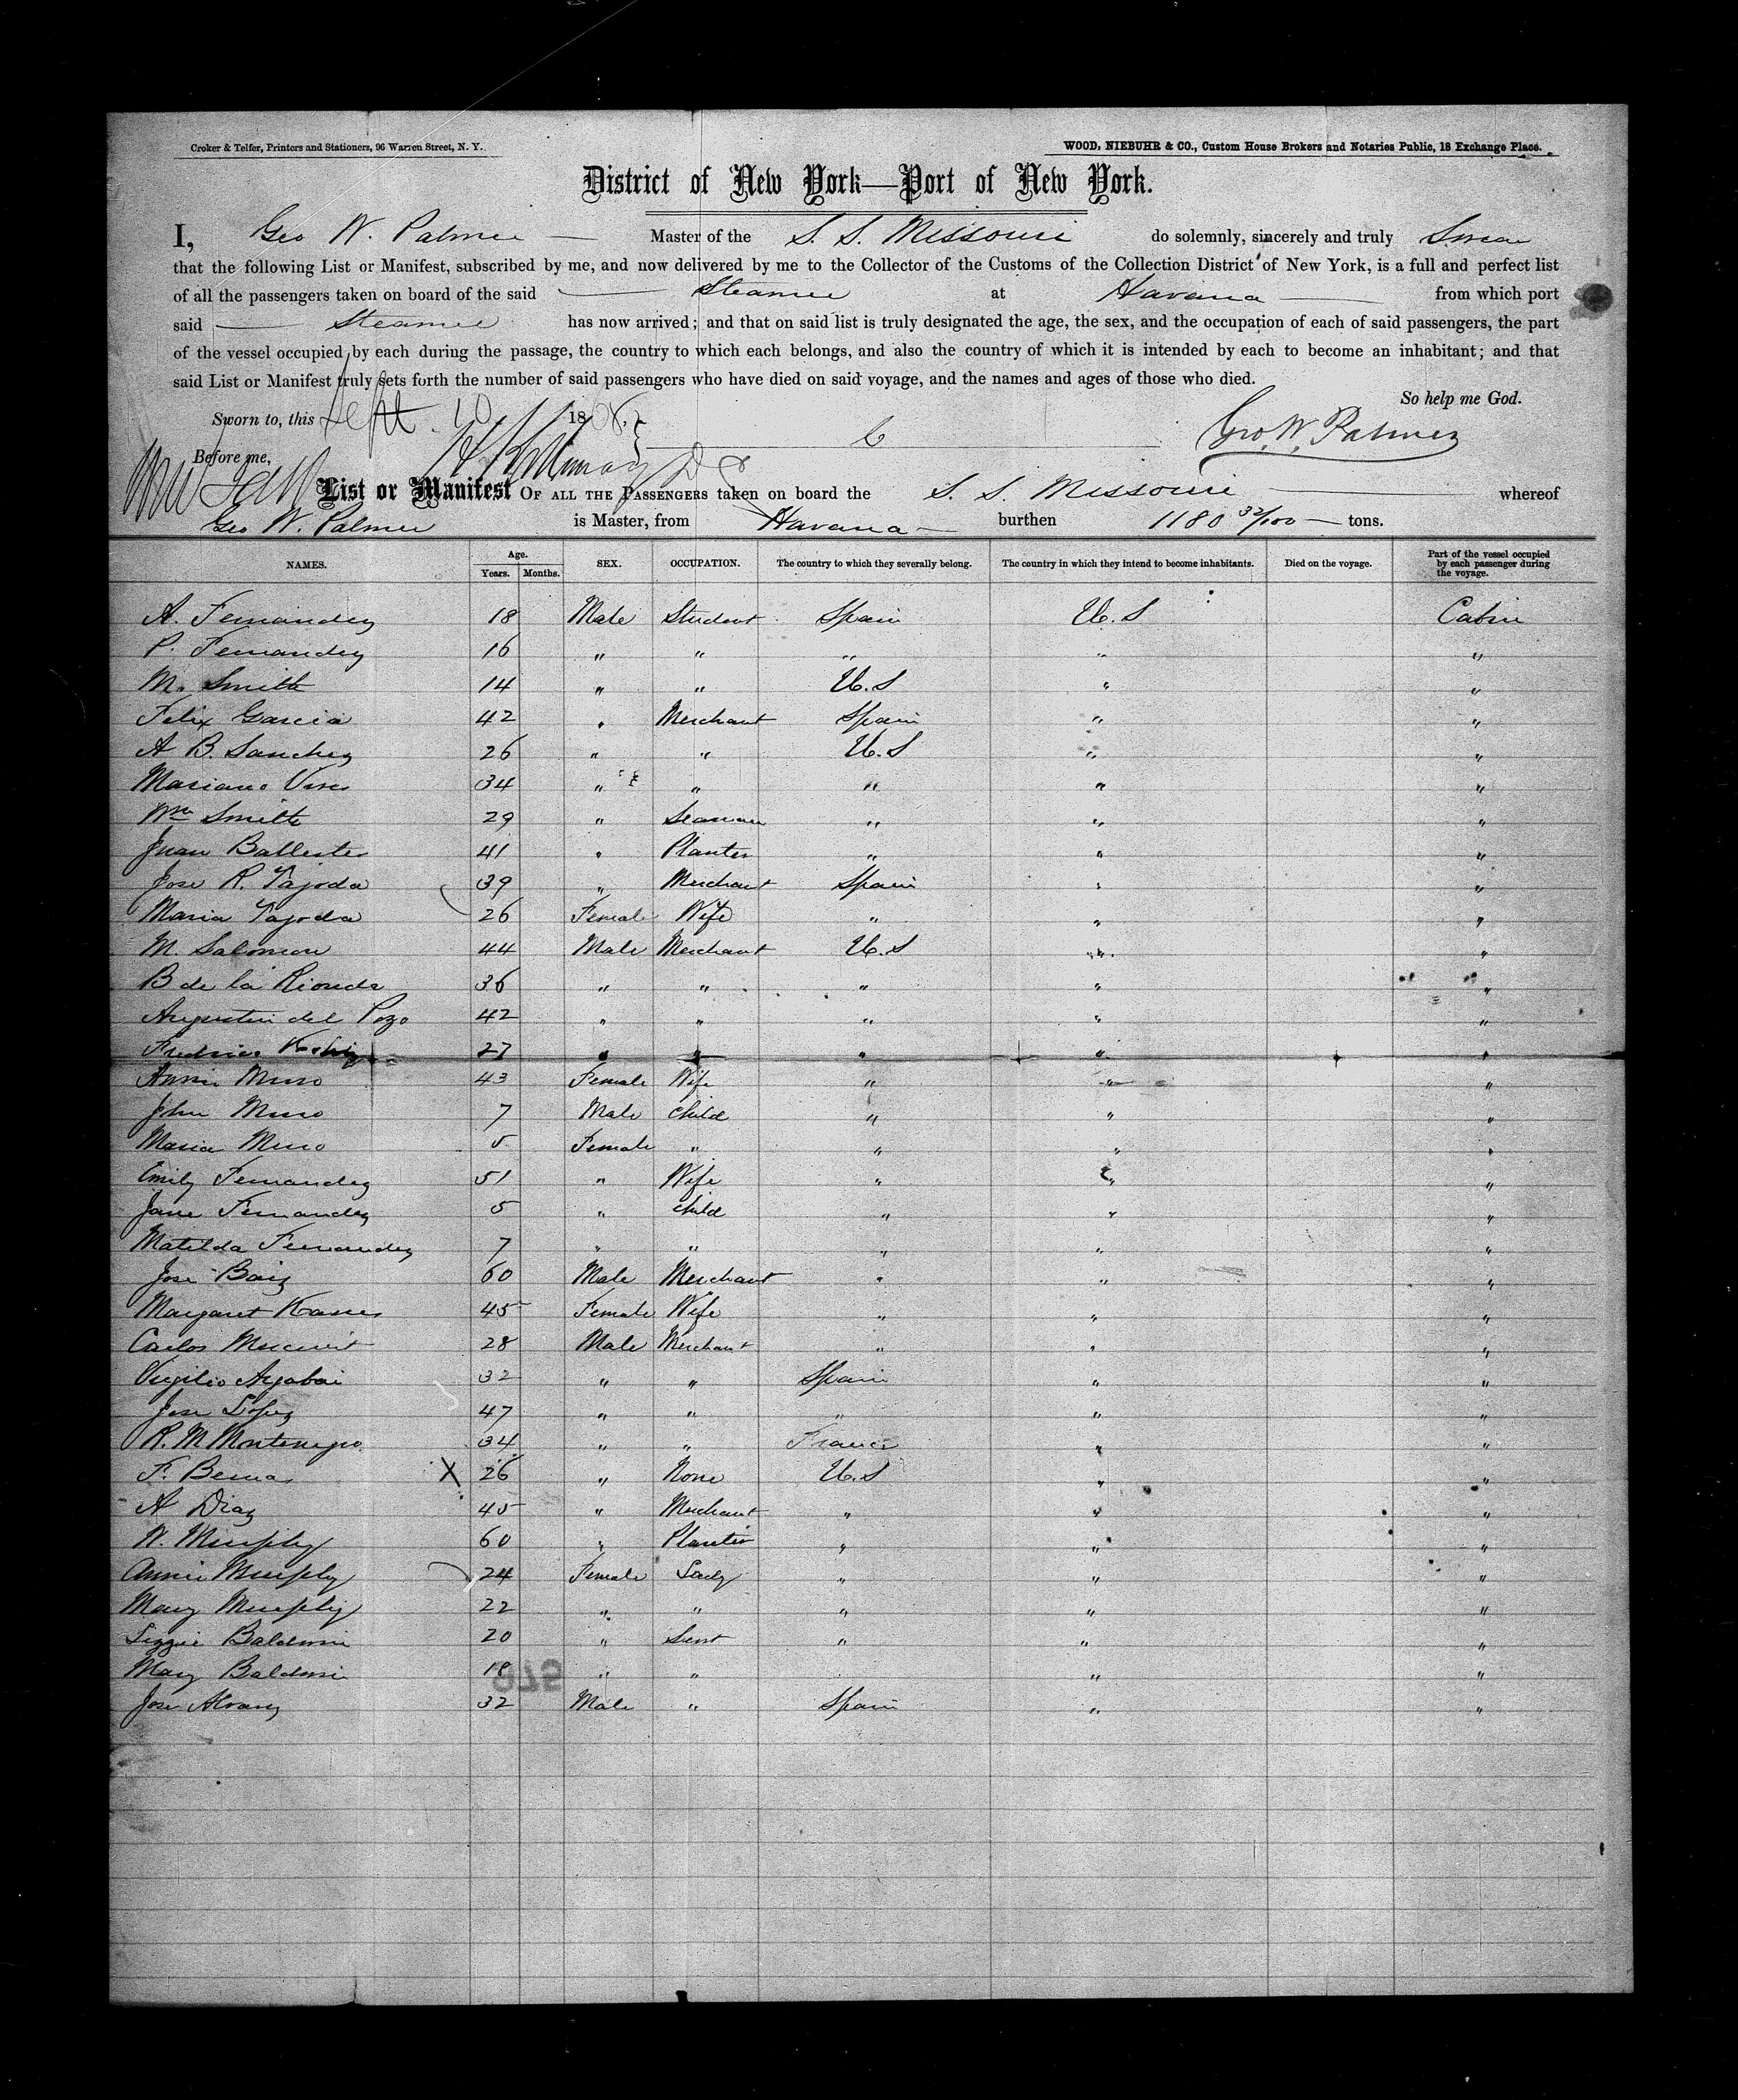 Croker & Telfer, Printers and Stationers, 96 Warren Street, N. Y. WOOD, NIEBUHR & CO., Custom House Brokers and Notaries Public, 18 Exchange Place.
District of New York—Port of New York.
I, Geo W. Palmer — Master of the S. S. Missouri do solemnly, sincerely and truly Swear
that the following List or Manifest, subscribed by me, and now delivered by me to the Collector of the Customs of the Collection District of New York, is a full and perfect list
of all the passengers taken on board of the said — Steamer at Havana — from which port
said — Steamer has now arrived; and that on said list is truly designated the age, the sex, and the occupation of each of said passengers, the part
of the vessel occupied by each during the passage, the country to which each belongs, and also the country of which it is intended by each to become an inhabitant; and that
said List or Manifest truly sets forth the number of said passengers who have died on said voyage, and the names and ages of those who died.
So help me God.
Sworn to, this Sept. 10 18 Geo. W. Palmer
Before me,
List or Manifest OF ALL THE PASSENGERS taken on board the S. S. Missouri — whereof
Geo W. Palmer is Master, from Havana — burthen 1180 32/100 — tons.
NAMES. Age. Years. Months. SEX. OCCUPATION. The country to which they severally belong. The country in which they intend to become inhabitants. Died on the voyage. Part of the vessel occupied by each passenger during the voyage.
A. Fernandez 18 Male Student Spain U. S Cabin
P. Fernandez 16 " " " " "
M. Smith 14 " " U. S " "
Felix Garcia 42 " Merchant Spain " "
A B. Sanchez 26 " " U. S " "
Mariano Vives 34 " " " " "
Wm Smith 29 " Seaman " " "
Juan Ballester 41 " Planter " " "
Jose R. Tajoda 39 " Merchant Spain " "
Maria Tajoda 26 Female Wife " " "
M. Salomon 44 Male Merchant U. S " "
B de la Rionda 36 " " " " "
Augustin del Pozo 42 " " " " "
27 " " " " "
Annie Muro 43 Female Wife " " "
John Muro 7 Male Child " " "
Maria Muro 5 Female " " " "
Emily Fernandez 51 " Wife " " "
Jane Fernandez 5 " Child " " "
Matilda Fernandez 7 " " " " "
Jose Baiz 60 Male Merchant " " "
Margaret 45 Female Wife " " "
Carlos 28 Male Merchant " " "
Virgilio 32 " " Spain " "
Jose Lopez 47 " " " " "
R. M Montenegro 34 " " France " "
F. X 26 " None U. S " "
A Diaz 45 " Merchant " " "
W. Murphy 60 " Planter " " "
Annie Murphy 24 Female Lady " " "
Mary Murphy 22 " " " " "
Lizzie Baldwin 20 " Servt " " "
Mary Baldwin 18 " " " "
Jose Alvarez 32 Male " Spain " "